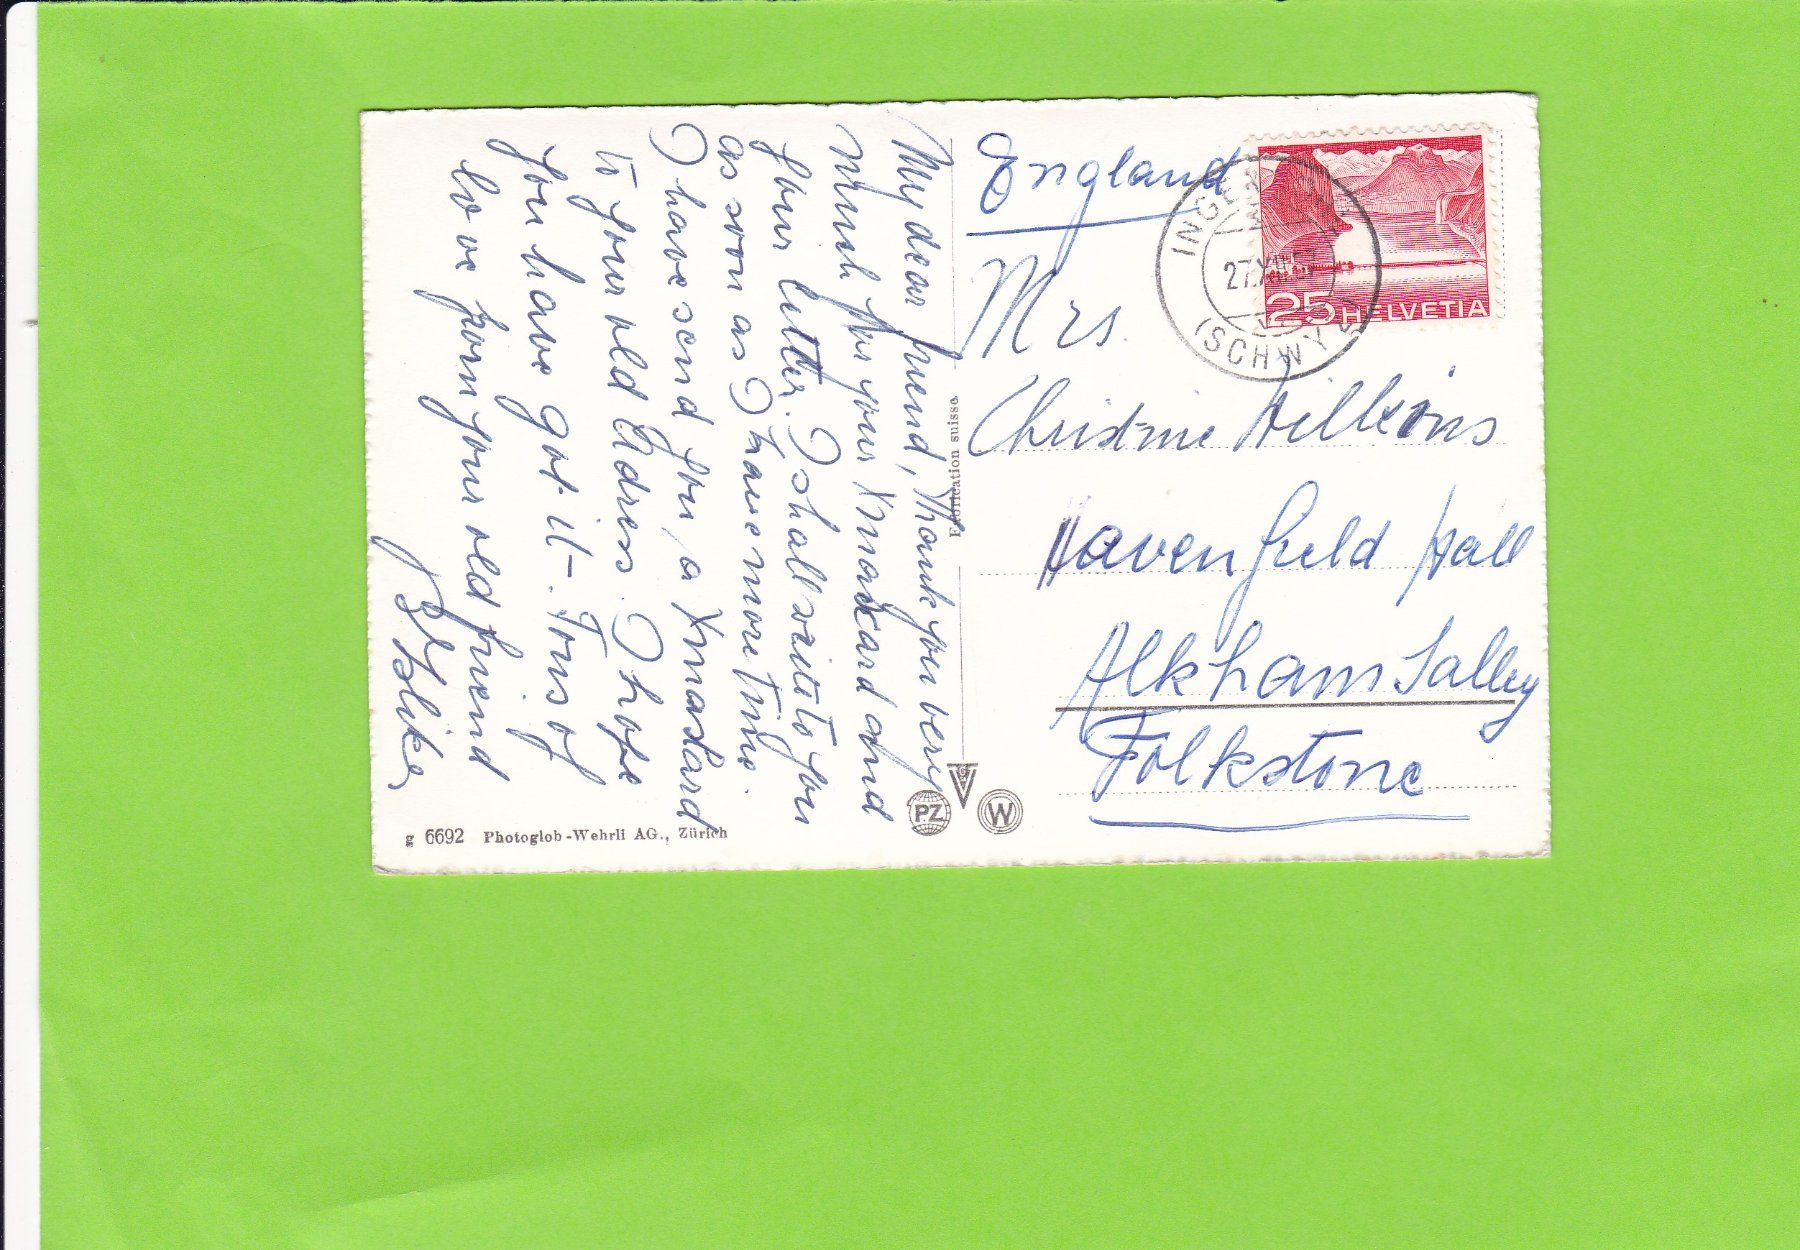 My dear friend, Thank you very
much for your Xmascard and
your letter. I shall write to you
as soon as I have more time.
I have send you a Xmascard
to your old Adress. I hope
you have got it. Tons of
love from your old friend
England
Mrs.
Christine Williams
Havenfield Hall
Alkham Valley
Folkstone
27.XII.5
(SCHWYZ)
25 HELVETIA
Fabrication suisse.
PZ
W
g 6692 Photoglob-Wehrli AG., Zürich